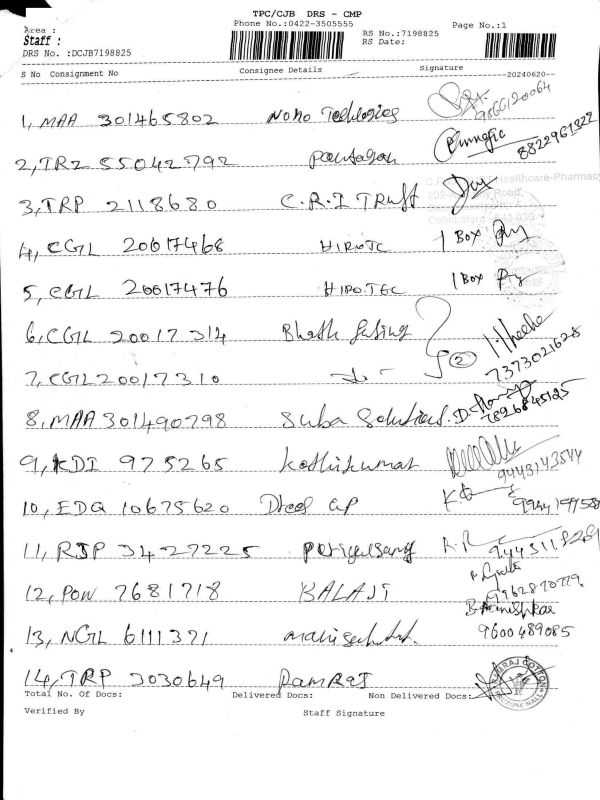 TPC/CJB DRS - CMP
Phone No.:0422-3505555
Page No.:1
Area :
Staff :
RS No.:7198825
RS Date:
DRS No. :DCJB7198825
S No Consignment No Consignee Details Signature
20240620
1, MAA 301465802 Nono
9566120064
2, TRZ 55042792
8822961322
3, TRP 2118680 C.R.I TRUST
4, CGIL 20017468 HIROTC 1 BOX
5, CGIL 20017476 HIROTEC 1 BOX
6, CGIL 20017314
7373021628
7, CGIL 20017310
2
8, MAA 301490798 Suba Solutions.
7826845125
9, KDI 975265 Kathikumar
9443143544
10, EDQ 10675620
11, RJP 3427225
12, POW 7681718 BALAJI
13, NGIL 6111371
9600489085
14, TRP 3030649 RamRaj
RAMRAJ COTTON
Total No. Of Docs: Delivered Docs: Non Delivered Docs:
Verified By Staff Signature